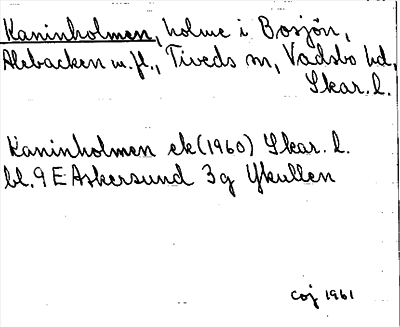 Kaninholmen, holme i Bosjön,
Alebacken m.fl., Tiveds sn, Vadsbo hd,
Skar. l.
Kaninholmen ek (1960) Skar. l.
bl. 9 E Askersund 3g Ykullen
coj 1961